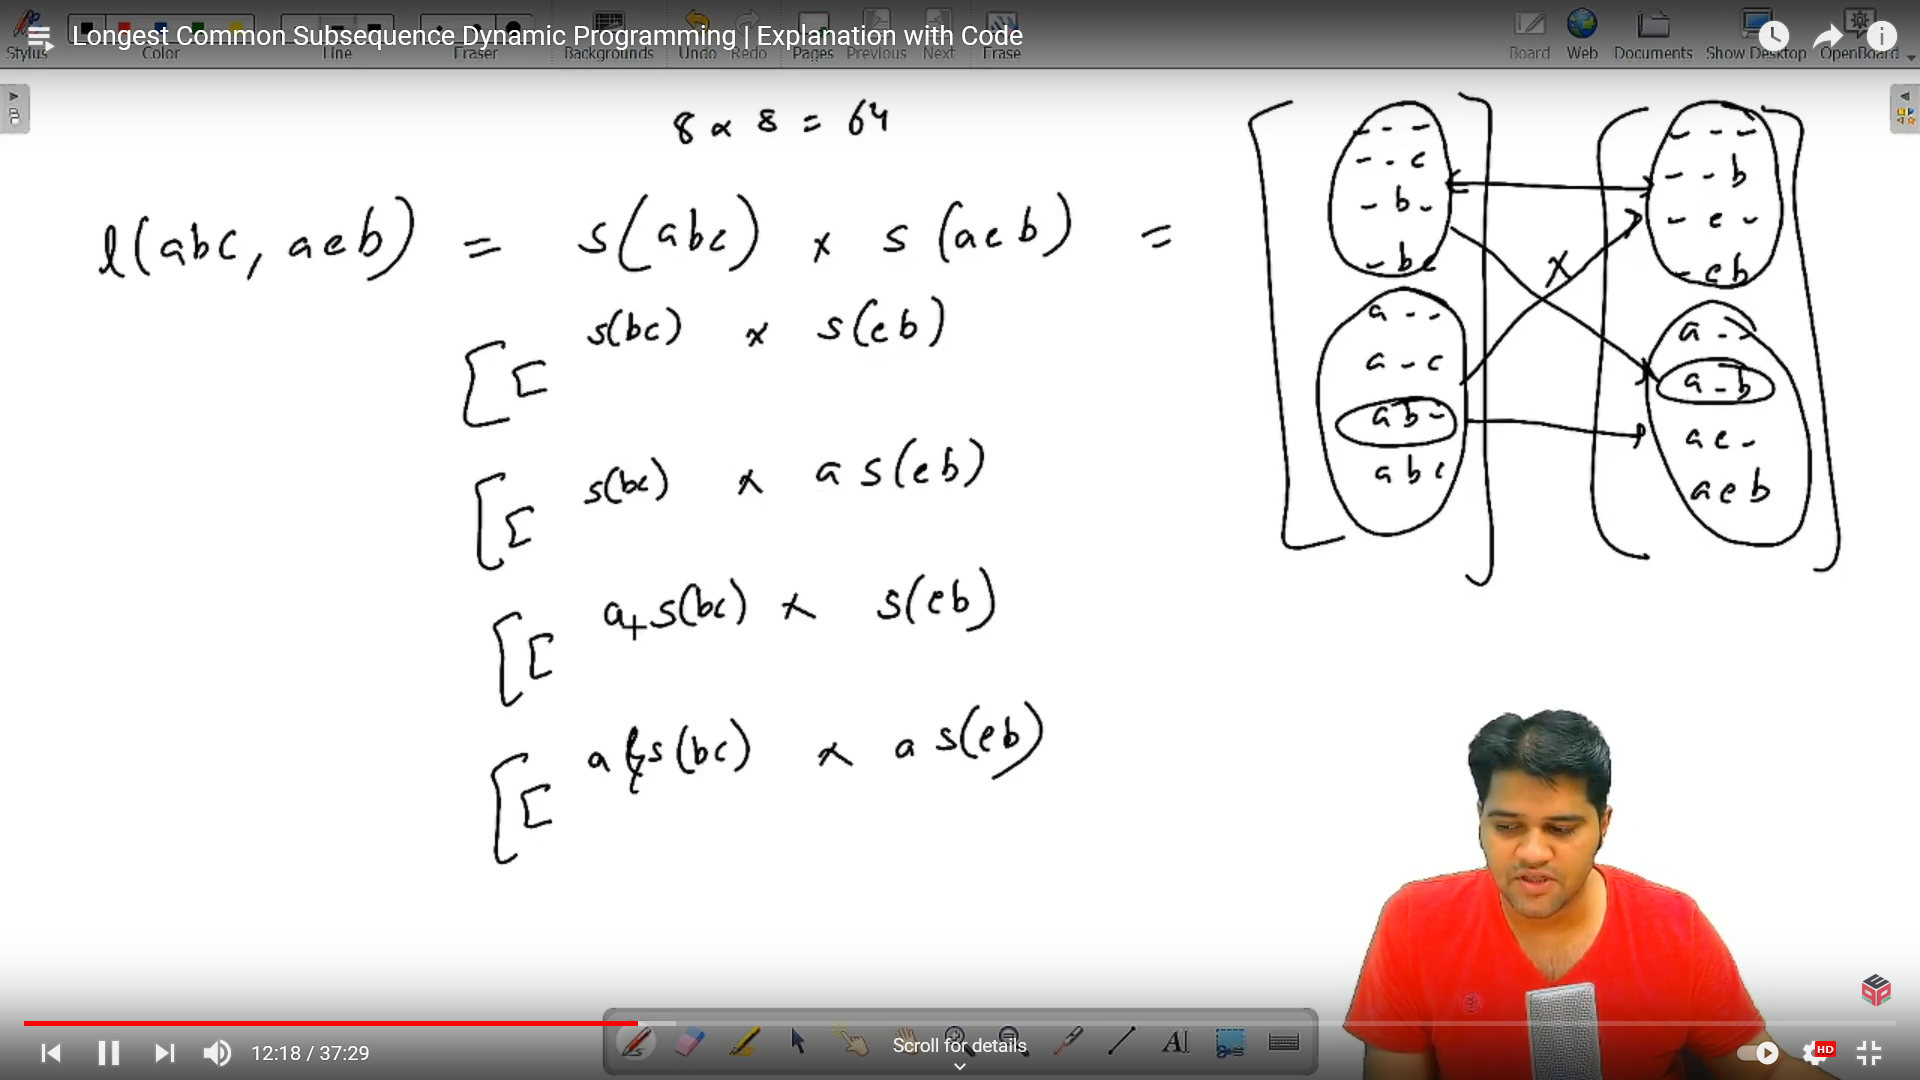 Longest Common Subsequence Dynamic Programming | Explanation with Code
Stylus Color Line Eraser Backgrounds Undo Redo Pages Previous Next Erase Board Web Documents Show Desktop OpenBoard
8 × 8 = 64
l(abc, aeb) = s(abc) × s(aeb) =
s(bc) × s(eb)
s(bc) × a s(eb)
a + s(bc) × s(eb)
a s(bc) × a s(eb)
- - -
- - c
- b -
- bc
a - -
a - c
ab -
abc
×
- - -
- - b
- e -
- eb
a - -
a - b
ae -
aeb
Scroll for details
12:18 / 37:29
HD